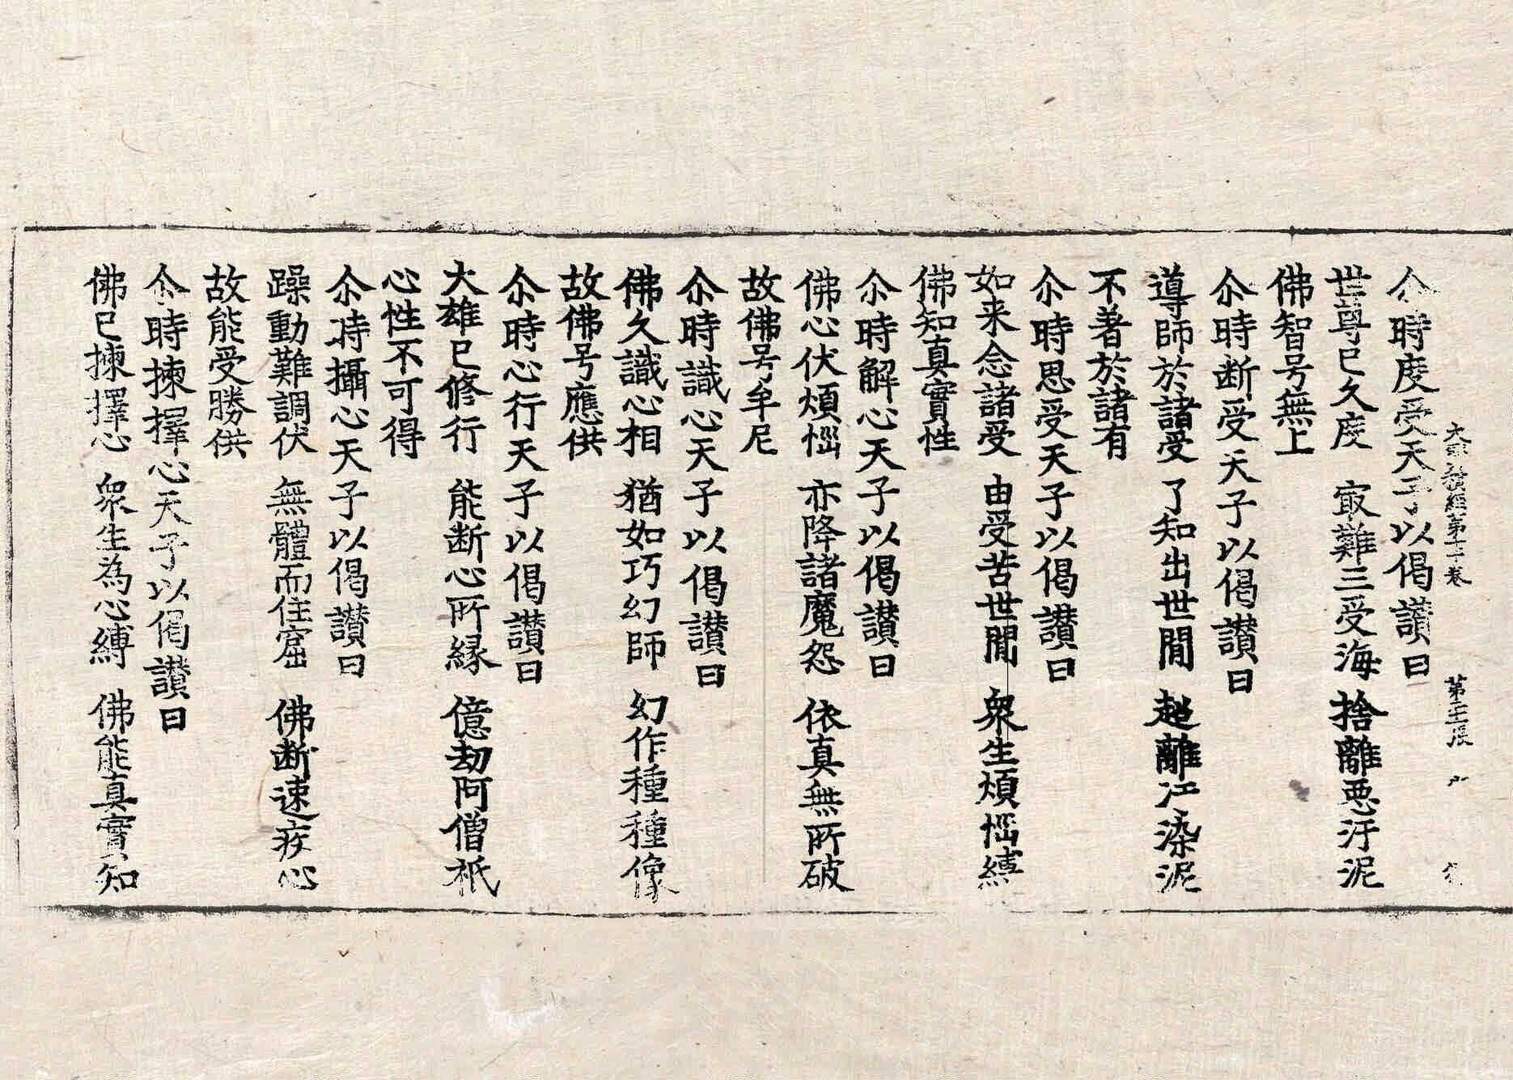 大寶積經第十卷 第十三張
尒時度受天子以偈讃曰
世尊已久度 㝡難三受海 捨離惡汙泥
佛智号無上
尒時断受天子以偈讃曰
導師於諸受 了知出世閒 超離江染泥
不著於諸有
尒時思受天子以偈讃曰
如来念諸受 由受苦世閒 衆生煩惱縛
佛知真實性
尒時解心天子以偈讃曰
佛心伏煩惱 亦降諸魔怨 依真無所破
故佛号牟尼
尒時識心天子以偈讃曰
佛久識心相 猶如巧幻師 幻作種種像
故佛号應供
尒時心行天子以偈讃曰
大雄已修行 能断心所縁 億劫阿僧祇
心性不可得
尒時攝心天子以偈讃曰
躁動難調伏 無體而住窟 佛断速疾心
故能受勝供
尒時揀擇心天子以偈讃曰
佛已揀擇心 衆生為心縛 佛能真實知